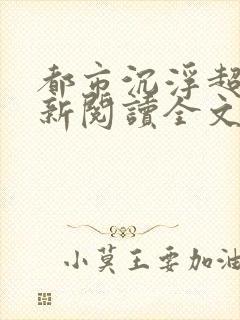 都市沉浮超
新閱讀全文
小莫王要加油